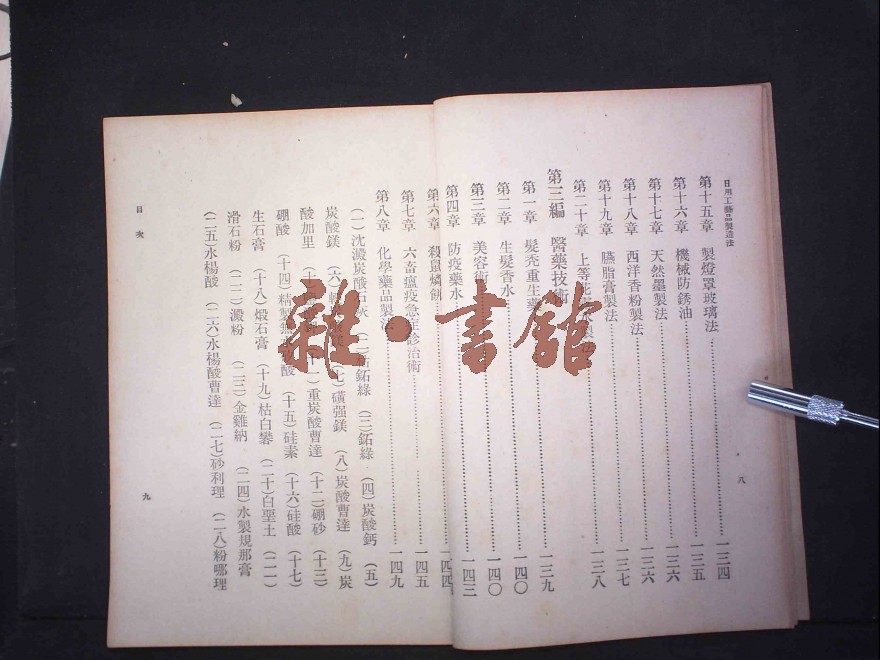 日用工藝品製造法
第十五章 製燈罩玻璃法 一三四
第十六章 機械防銹油 一三五
第十七章 天然墨製法 一三六
第十八章 西洋香粉製法 一三六
第十九章 臙脂膏製法 一三七
第二十章 上等花 製法 一三八
第三編 醫藥技術
第一章 髮禿重生藥 一三九
第二章 生髮香水 一四〇
第三章 美容術 一四〇
第四章 防疫藥水 一四三
八
第六章 殺鼠燐餅 一四四
第七章 六畜瘟疫急症診治術 一四五
第八章 化學藥品製法 一四九
(一)沈澱炭酸石灰 (三)鉐綠 (四)炭酸鈣 (五)
炭酸鎂 (六) (七)磺强鎂 (八)炭酸曹達 (九)炭
酸加里 重炭酸曹達 (十二)硼砂 (十三)
硼酸 (十四)精製 酸 (十五)硅素 (十六)硅酸 (十七)
生石膏 (十八)煅石膏 (十九)枯白礬 (二十)白堊土 (二一)
滑石粉 (二二)澱粉 (二三)金雞納 (二四)水製規那膏
(二五)水楊酸 (二六)水楊酸曹達 (二七)砂利理 (二八)粉哪理
目次
九
雜·書館